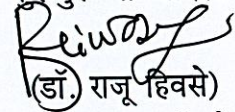 (डॉ. राजू हिवसे)